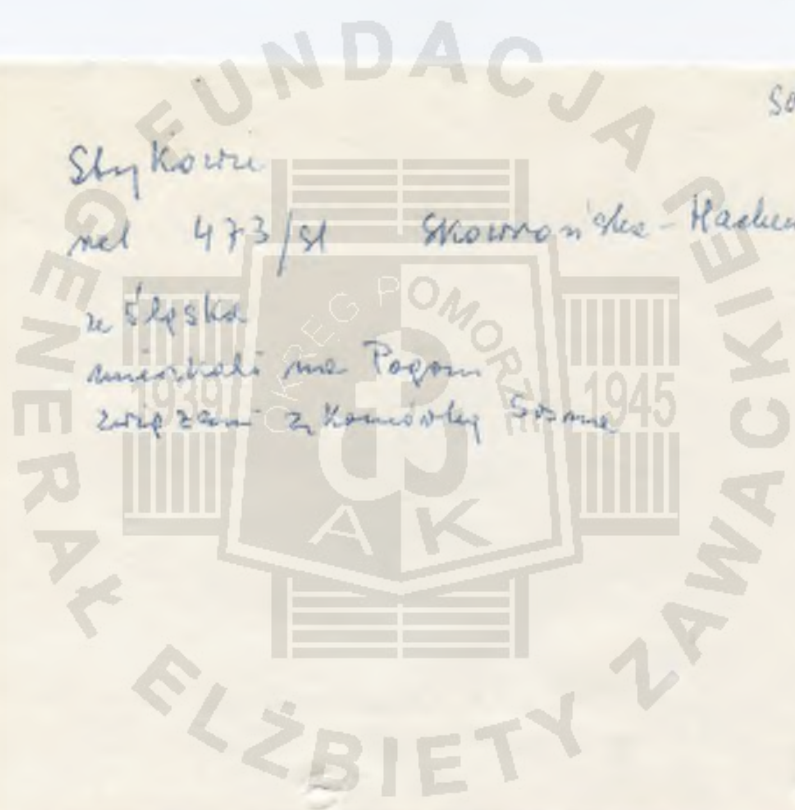 So
Stykowie
rel 473/Sl Skowrońska-Machu
ze Śląska
mieszkali na Pogoni
związani z Komórką Sosna
FUNDACJA GENERAŁ ELŻBIETY ZAWACKIEJ
OKRĘG POMORZE
1939 1945
AK